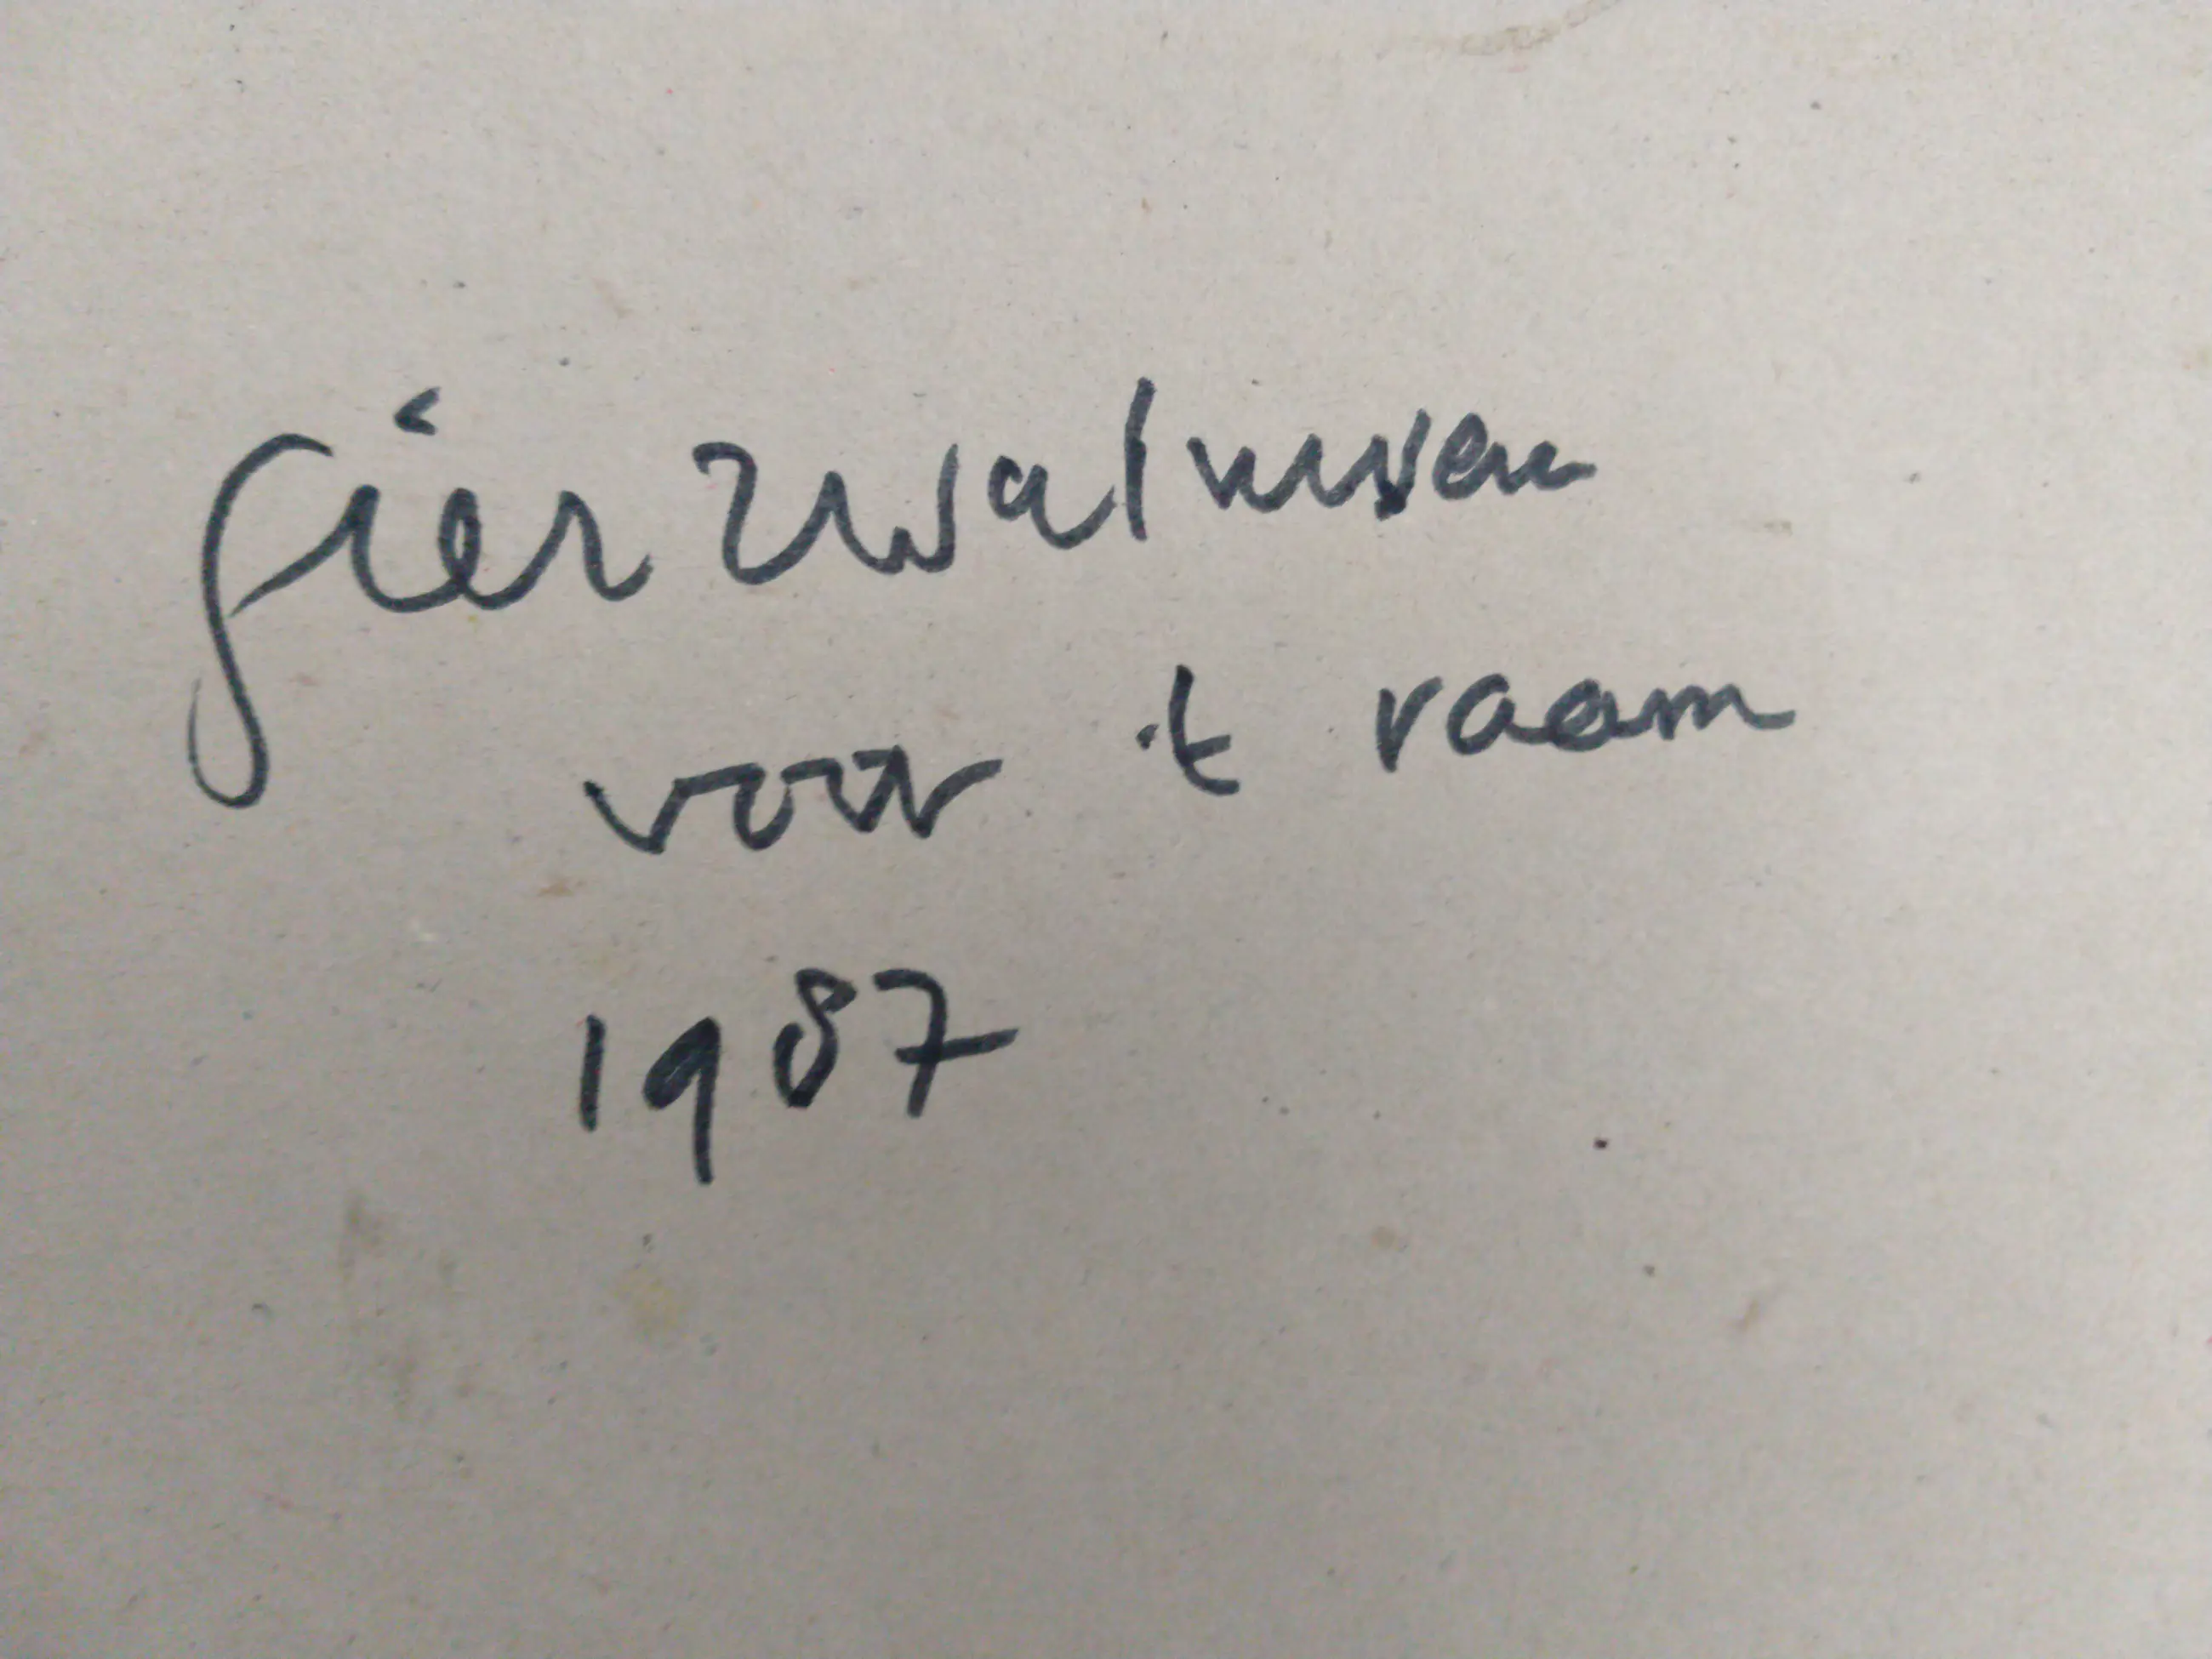 gierzwaluwen
voor 't raam
1987